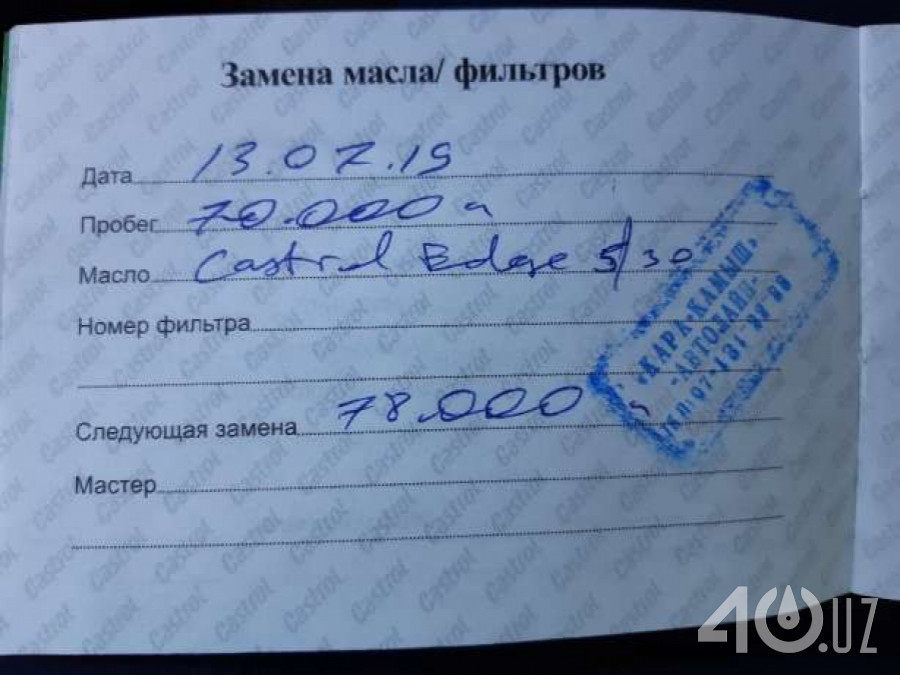 Замена масла/ фильтров
Дата 13.07.19
Пробег 70.000
Масло Castrol Edge 5/30
Номер фильтра
Следующая замена 78.000
Мастер
«КАРА-КАМЫШ»
-АВТОЛАЙН-
40.UZ